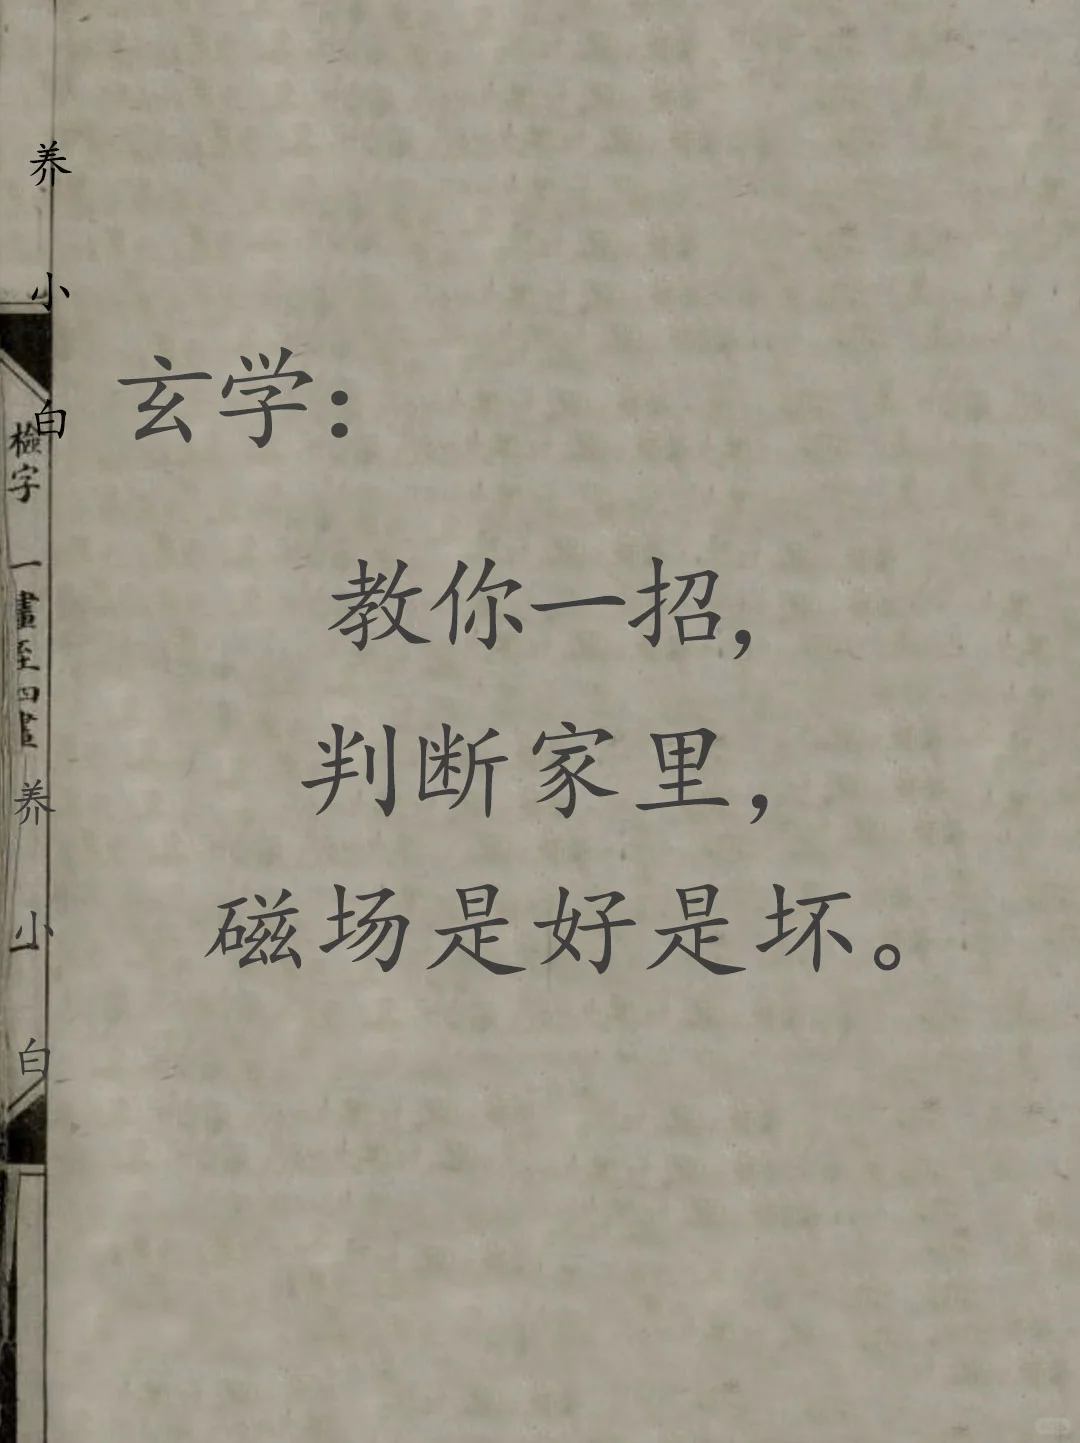 养小白
玄学：
教你一招，
判断家里，
磁场是好是坏。
檢字 一畫至四畫
养小白